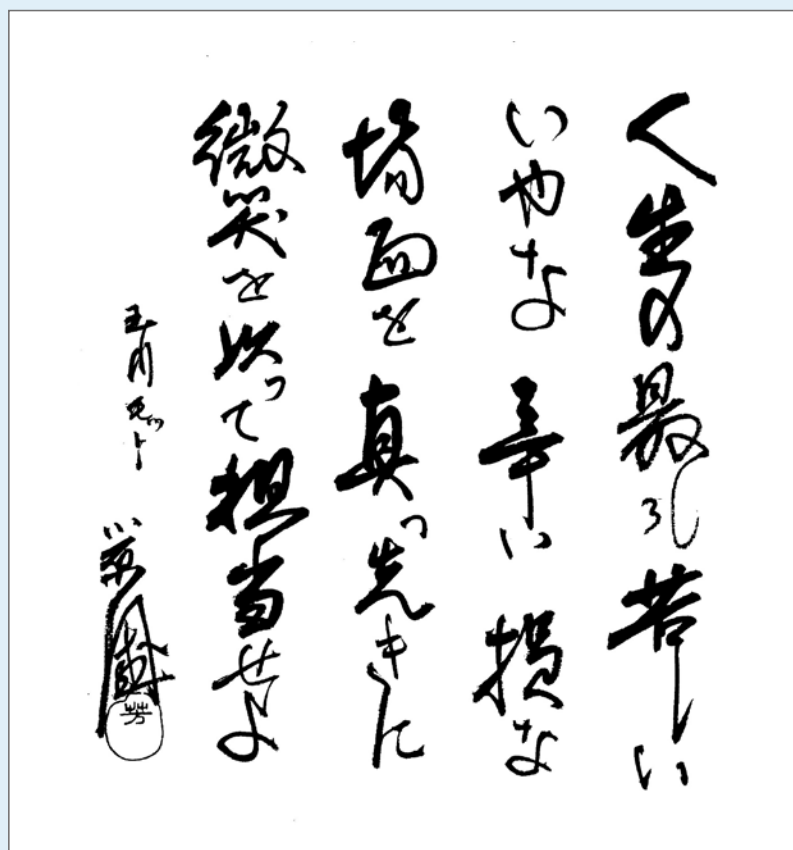 人生の最も苦しい
いやな 辛い 損な
場面を真っ先きに
微笑を以って担当せよ
小原國芳